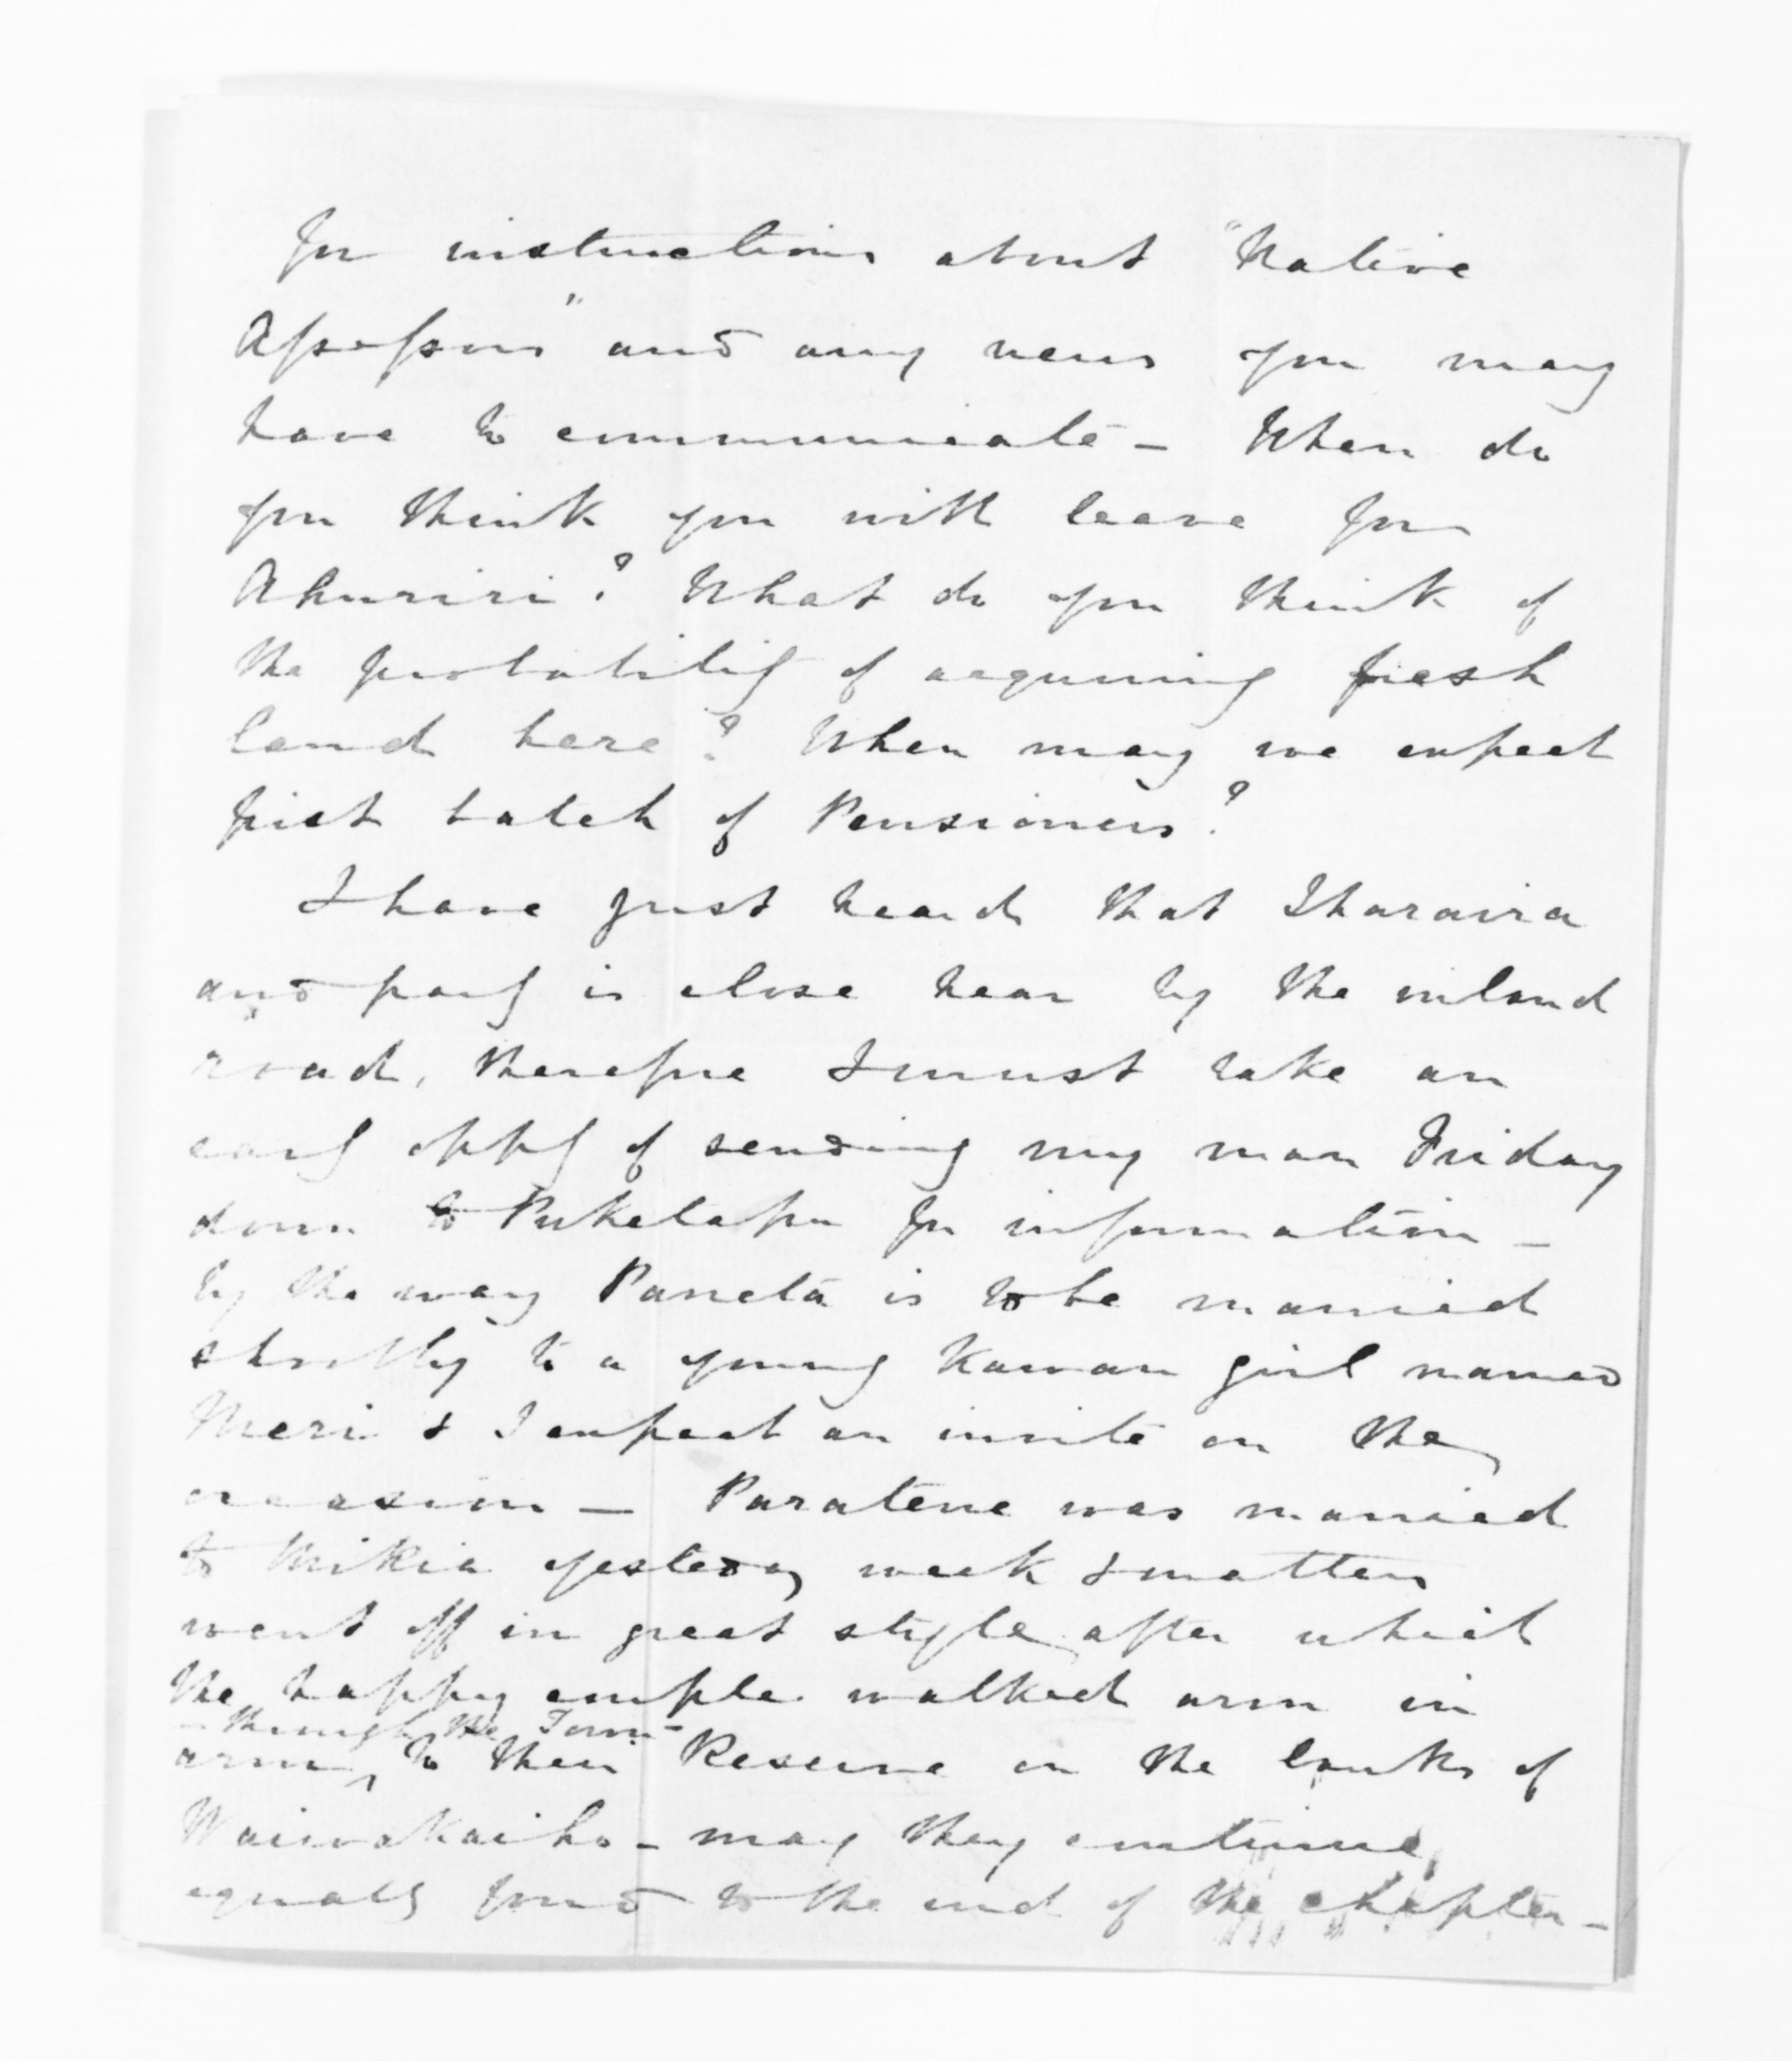 for instructions about "Native
Assessors" and any news you may
have to communicate – When do
you think you will leave for
Ahuriri? What do you think of
the probability of acquiring fresh
land here? When may we expect
first batch of Pensioners?
I have just heard that Iharaira
and party is close hear by the inland
road, therefore I must take an
early oppy of sending my man Friday
down to Puketapu for information –
by the way Paneta is to be married
shortly to a young Kawau girl named
Meri & I expect an invite on the
occasion – Paratene was married
to Mikia yesterday week & matters
went off in great style after which
the happy couple walked arm in
– through the Town –
arm, to their Reserve on the banks of
Waiwakaiho – may they continue
equally fond to the end of the chapter –